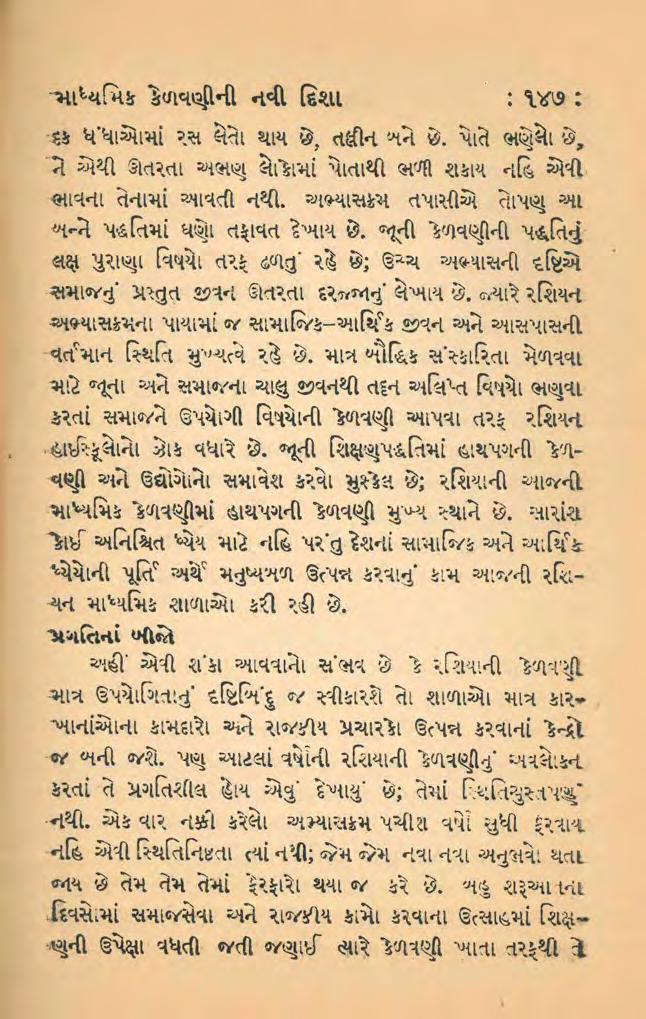 માધ્યમિક કેળવણીની નવી દિશા : ૧૪૭ :
દક ધંધાઓમાં રસ લેતો થાય છે, તલ્લીન બને છે. પોતે ભણેલો છે,
ને એથી ઊતરતા અભણ લોકોમાં પોતાથી ભળી શકાય નહિ એવી
ભાવના તેનામાં આવતી નથી. અભ્યાસક્રમ તપાસીએ તોપણ આ
બન્ને પદ્ધતિમાં ઘણો તફાવત દેખાય છે. જૂની કેળવણીની પદ્ધતિનું
લક્ષ પુરાણા વિષયો તરફ ઢળતું રહે છે; ઉચ્ચ અભ્યાસની દૃષ્ટિએ
સમાજનું પ્રસ્તુત જીવન ઊતરતા દરજ્જાનું લેખાય છે. જ્યારે રશિયન
અભ્યાસક્રમના પાયામાં જ સામાજિક–આર્થિક જીવન અને આસપાસની
વર્તમાન સ્થિતિ મુખ્યત્વે રહે છે. માત્ર બૌદ્ધિક સંસ્કારિતા મેળવવા
માટે જૂના અને સમાજના ચાલુ જીવનથી તદ્દન અલિપ્ત વિષયો ભણવા
કરતાં સમાજને ઉપયોગી વિષયોની કેળવણી આપવા તરફ રશિયન
હાઈસ્કૂલોનો ઝોક વધારે છે. જૂની શિક્ષણપદ્ધતિમાં હાથપગની કેળ-
વણી અને ઉદ્યોગોનો સમાવેશ કરવો મુશ્કેલ છે; રશિયાની આજની
માધ્યમિક કેળવણીમાં હાથપગની કેળવણી મુખ્ય સ્થાને છે. સારાંશ
કોઈ અનિશ્ચિત ધ્યેય માટે નહિ પરંતુ દેશનાં સામાજિક અને આર્થિક
ધ્યેયોની પૂર્તિ અર્થે મનુષ્યબળ ઉત્પન્ન કરવાનું કામ આજની રશિ-
યન માધ્યમિક શાળાઓ કરી રહી છે.
પ્રગતિનાં બીજો
અહીં એવી શંકા આવવાનો સંભવ છે કે રશિયાની કેળવણી
માત્ર ઉપયોગિતાનું દૃષ્ટિબિંદુ જ સ્વીકારશે તો શાળાઓ માત્ર કાર-
ખાનાંઓના કામદારો અને રાજકીય પ્રચારકો ઉત્પન્ન કરવાનાં કેન્દ્રો
જ બની જશે. પણ આટલાં વર્ષોની રશિયાની કેળવણીનું અવલોકન
કરતાં તે પ્રગતિશીલ હોય એવું દેખાયું છે; તેમાં સ્થિતિચુસ્તપણું
નથી. એક વાર નક્કી કરેલો અભ્યાસક્રમ પચીશ વર્ષો સુધી ફેરવાય
નહિ એવી સ્થિતિનિષ્ઠતા ત્યાં નથી; જેમ જેમ નવા નવા અનુભવો થતા
જાય છે તેમ તેમ તેમાં ફેરફારો થયા જ કરે છે. બહુ શરૂઆતના
દિવસોમાં સમાજસેવા અને રાજકીય કામો કરવાના ઉત્સાહમાં શિક્ષ-
ણની ઉપેક્ષા વધતી જતી જણાઈ ત્યારે કેળવણી ખાતા તરફથી તે